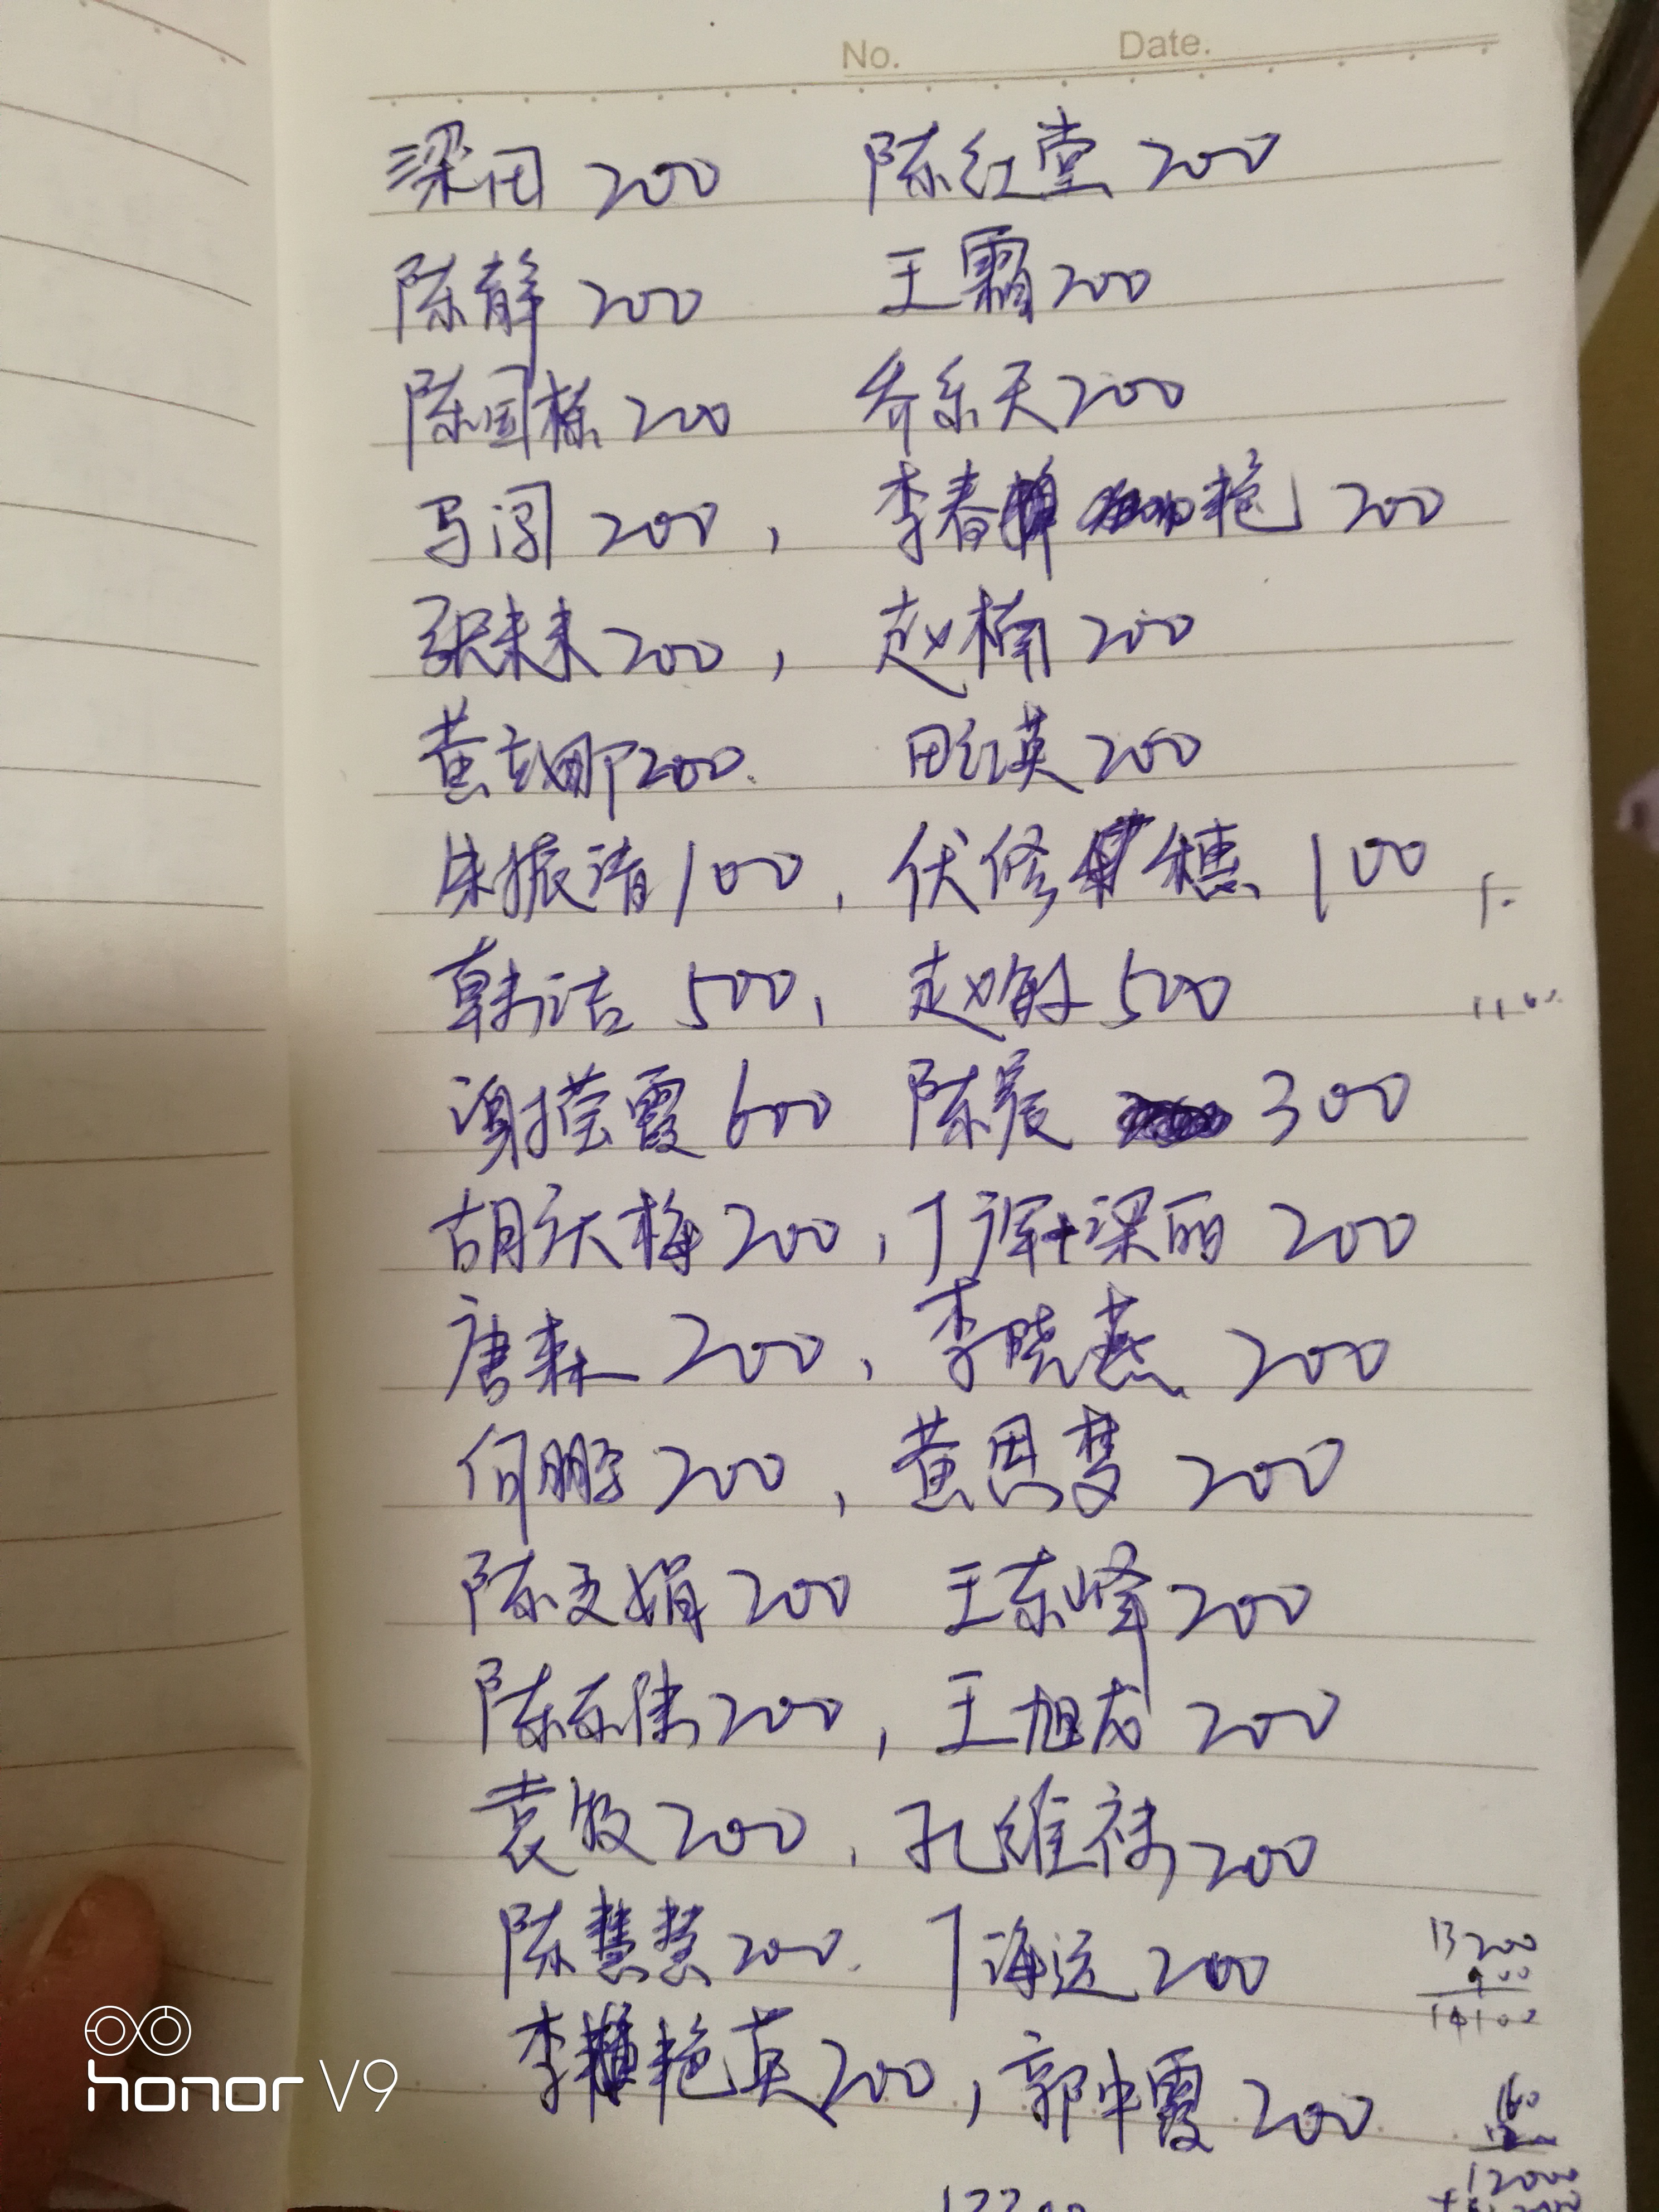 No. Date.
梁田 200 陈红堂 200
陈静 200 王霜 200
陈国栋 200 乔乐天 200
马闯 200, 李春艳 200
张未来 200, 赵楠 200
黄娜 200. 田红英 200
朱振清 100, 伏修穗 100
韩洁 500, 赵敏 500
谢莹霞 600 陈辰 300
胡庆梅 200, 丁军+梁丽 200
唐森 200, 李晓燕 200
何鹏宇 200, 黄思梦 200
陈文娟 200 王东峰 200
陈伟 200, 王旭龙 200
袁牧 200, 孔维祎 200
陈慧慧 200. 丁海运 200
李艳英 200, 郭中霞 200
13200
900
14100
160
12000
honor V9